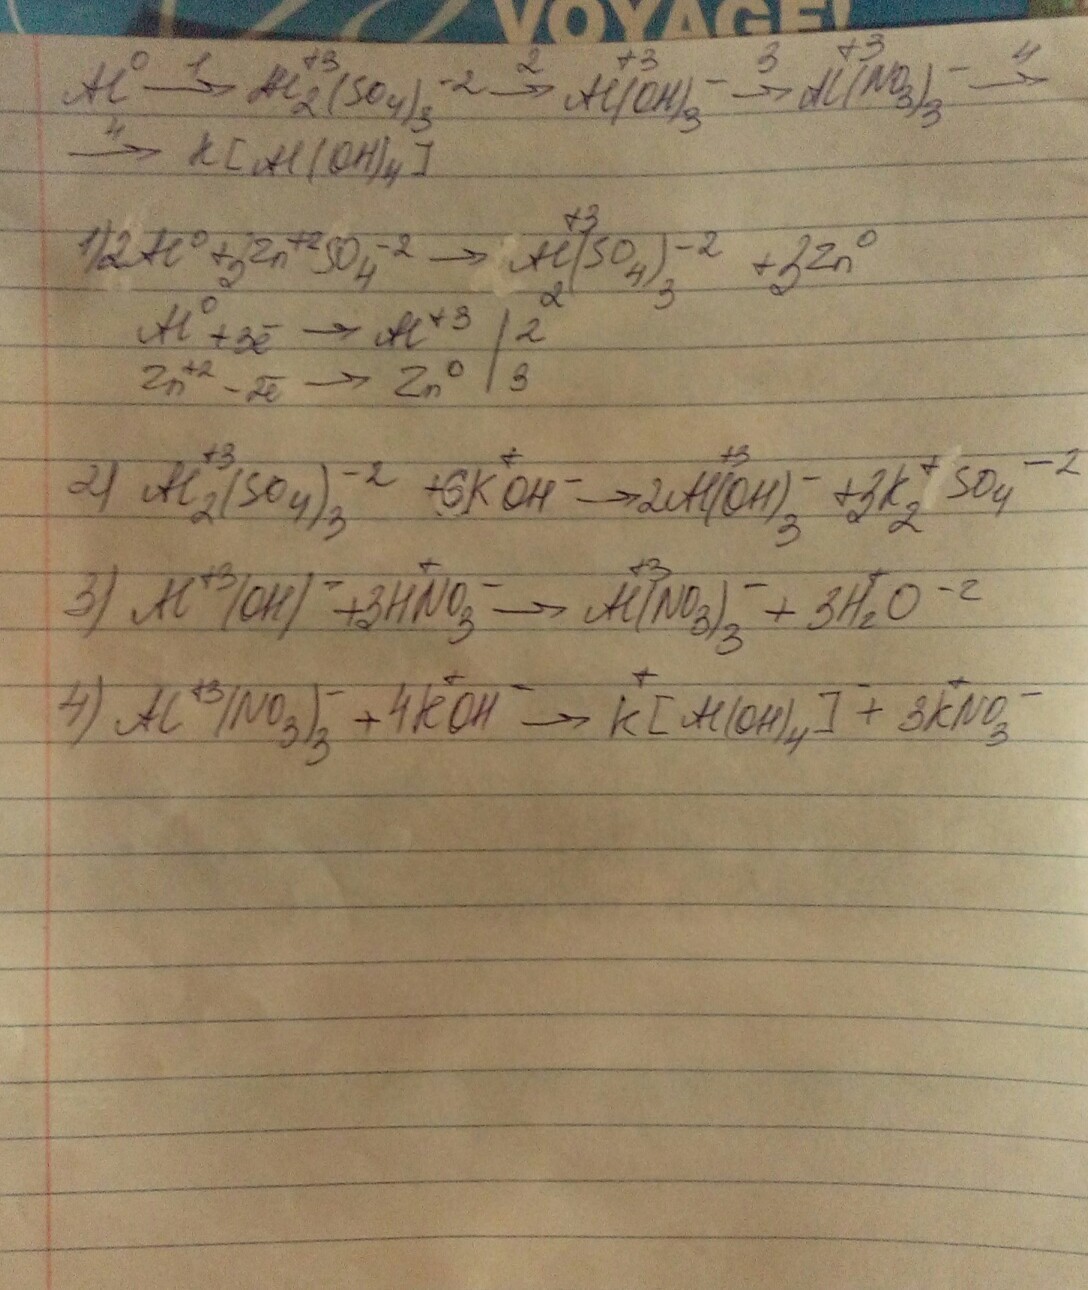 VOYAGE!
Al⁰ —1→ Al₂⁺³(SO₄)₃⁻² —2→ Al⁺³(OH)₃⁻ —3→ Al⁺³(NO₃)₃⁻ —4→
—4→ K[Al(OH)₄]
1) 2Al⁰ + 3Zn⁺²SO₄⁻² → Al₂⁺³(SO₄)₃⁻² + 3Zn⁰
Al⁰ + 3e̅ → Al⁺³ | 2
Zn⁺² - 2e̅ → Zn⁰ | 3
2) Al₂⁺³(SO₄)₃⁻² + 6K⁺OH⁻ → 2Al⁺³(OH)₃⁻ + 3K₂⁺SO₄⁻²
3) Al⁺³(OH)⁻ + 3H⁺NO₃⁻ → Al⁺³(NO₃)₃⁻ + 3H₂⁺O⁻²
4) Al⁺³(NO₃)₃⁻ + 4K⁺OH⁻ → K⁺[Al(OH)₄]⁻ + 3K⁺NO₃⁻